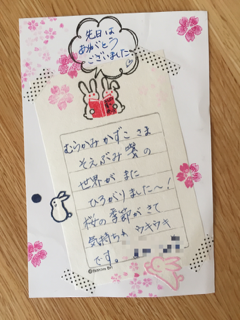 先日は
ありがとう
ございました
むらかみかずこさま
そえぶみ箋の
世界がまた
ひろがりましたへ!
桜の季節がきて
気持ちもウキウキ
です。